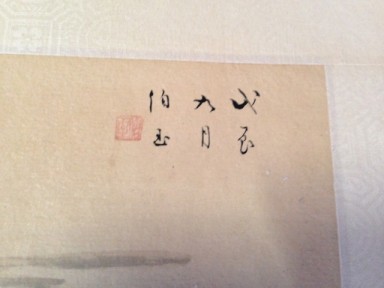 戊辰
九月
伯玉